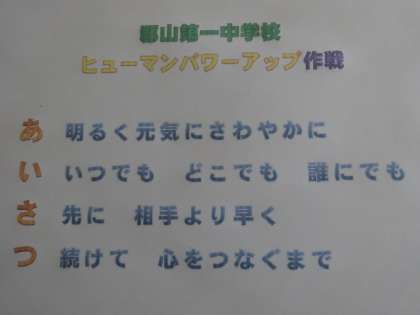 郡山第一中学校
ヒューマンパワーアップ作戦
あ 明るく元気にさわやかに
い いつでも どこでも 誰にでも
さ 先に 相手より早く
つ 続けて 心をつなぐまで